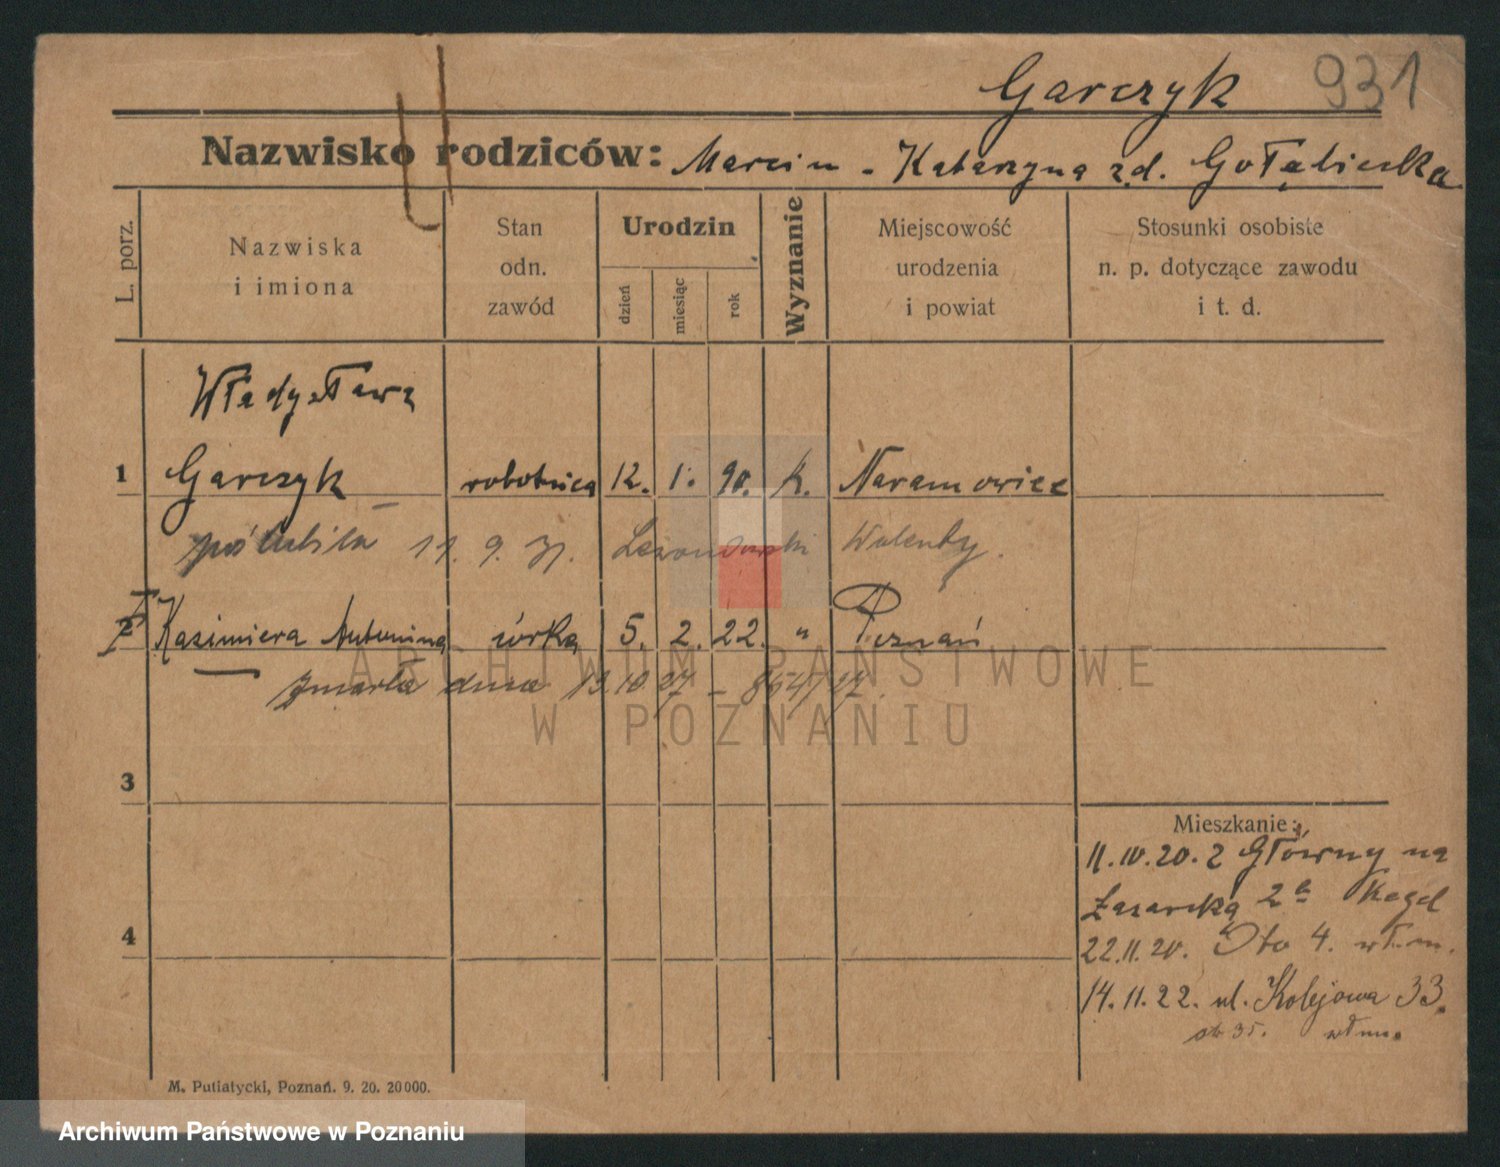 Garczyk 931
Nazwisko rodziców: Marcin - Katarzyna z d. Gołębiecka
L. porz.
Nazwiska
i imiona
Stan
odn.
zawód
Urodzin
dzień
miesiąc
rok
Wyznanie
Miejscowość
urodzenia
i powiat
Stosunki osobiste
n. p. dotyczące zawodu
i t. d.
Władysława
1 Garczyk robotnica 12. 1. 90. k. Naramowice
poślubiła 11. 9. 31. Lewandowski Walenty.
2 Kazimiera Antonina córka 5. 2. 22. " Poznań
zmarła dnia 13 10 27 -
ARCHIWUM PAŃSTWOWE
W POZNANIU
3
4
Mieszkanie:
11.10.20. z Główny na
Łazarską 2a Kegel
22.11.20. 4. wł. m.
14.11.22. ul. Kolejowa 33.
35. wł m.
M. Putiatycki, Poznań. 9. 20. 20000.
Archiwum Państwowe w Poznaniu